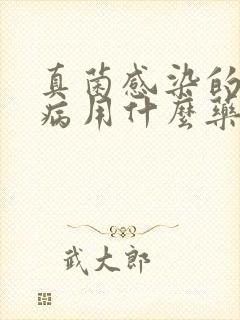 真菌感染的
病用什麼藥
武大郎